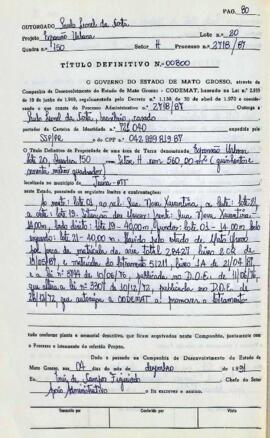 PAG. 80
OUTORGADO Paulo Leonel da Costa
Projeto Expansão Urbana Lote n.o 20
Quadra n.o 150 Setor H Processo n.o 2418/87
TÍTULO DEFINITIVO N.o 00800
O GOVERNO DO ESTADO DE MATO GROSSO, através da
Companhia de Desenvolvimento do Estado de Mato Grosso - CODEMAT, baseado na Lei n.o
de junho de 1969, regulamentada pelo Decreto n.o 1.138 de 30 de abril de 1970 e considerando
o que consta do Processo Administrativo n.o 2418/87 Outorga a
Paulo Leonel da Costa, brasileiro, casado
portador da Carteira de Identidade n.o 721040 expedida pela
SSP/PR e CPF 042.889.819.87
o Título Definitivo de Propriedade de uma área de Terra denominada Expansão Urbana
lote 20, Quadra 150 Setor H com 560,00 m2 (quinhentos e
sessenta metros quadrados)
localizada no município de MT
neste Estado, possuindo os seguintes limites e confrontações:
Ao norte: lote 03 ao sul: Rua Nova Xavantina, a leste: lote 21,
a oeste: lote 19. frente: Rua Nova Xavantina
14,00m, lado direito: lote 19 - 40,00m, fundos: lote 03 - 14,00m lado
esquerdo: lote 21 - 40,00m.
de matrícula da área total 28427, livro 2
matrícula do loteamento 51211, livro 2A de 21/04/87, e
a Lei n.o de 10/06/76, publicada no D.O.E. de 11/06/76,
que altera a Lei n.o 3307 de 10/12/72, publicada no D.O.E. de
12/72 que autoriza a CODEMAT a promover o loteamento
tudo conforme planta e memorial descritivo, que ficam arquivados nesta Companhia, juntamente com
o Processo e loteamento do referido Projeto.
Dado e passado na Companhia de Desenvolvimento do Estado de
Mato Grosso, aos 04 dias do mês de dezembro de 1991
Eu, de Campos Figueiredo Chefe do Setor
Apoio Administrativo Fiz escrever e assino.
Datado por
Conferido por
Visto